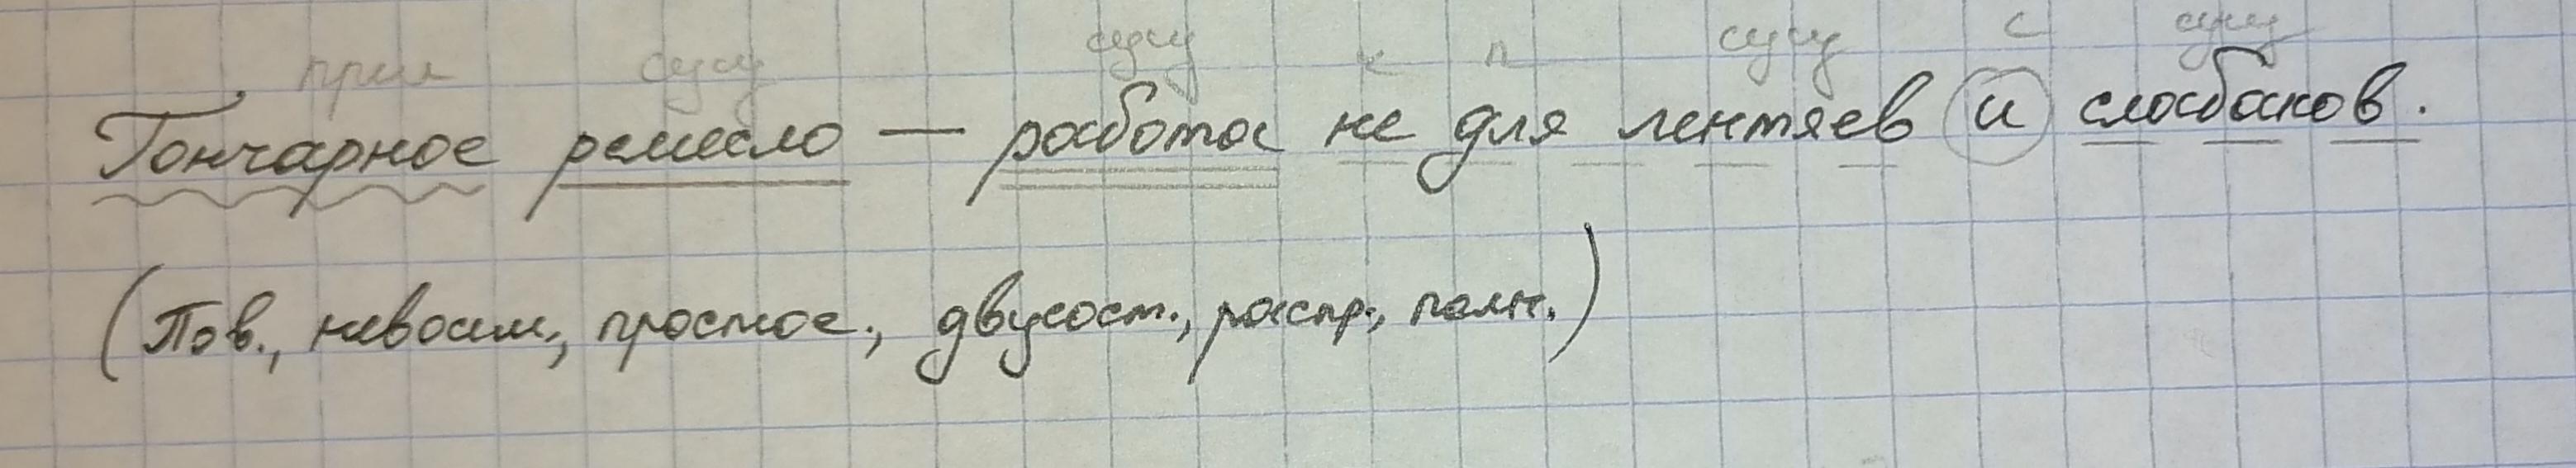 прил сущ сущ ч п сущ с сущ
Гончарное ремесло — работа не для лентяев и слабаков.
(Пов., невоскл., простое., двусост., распр., полн.)